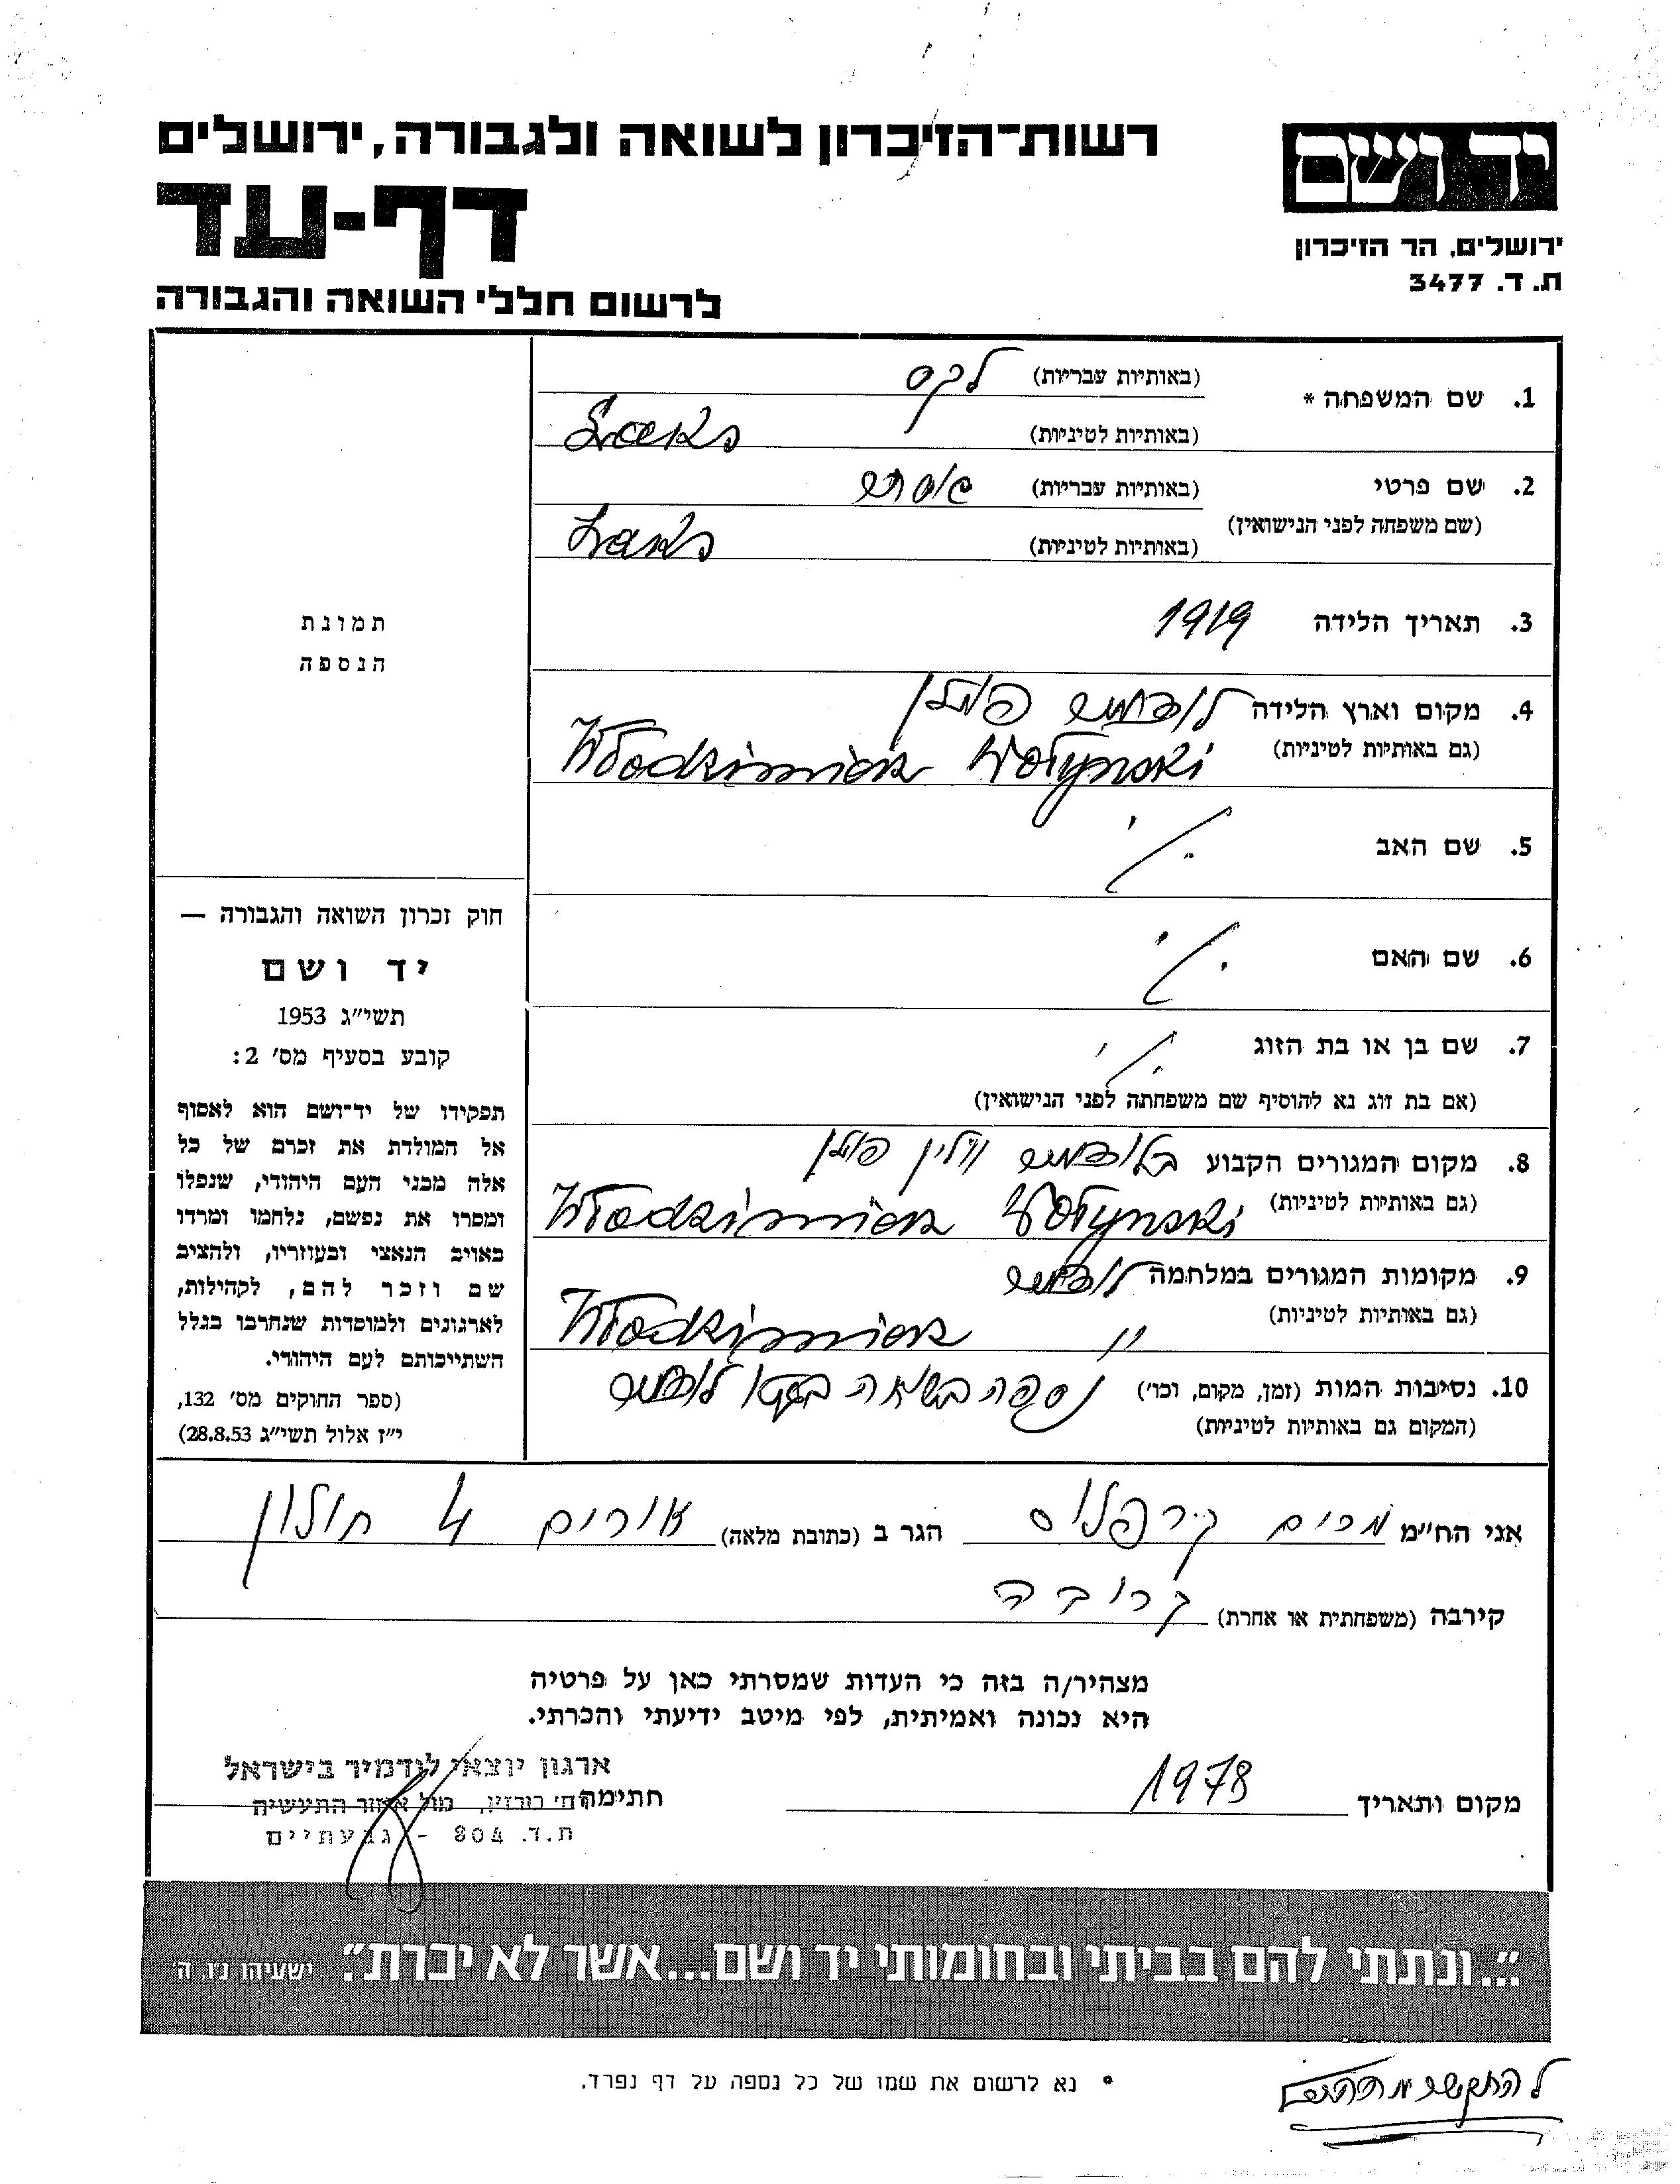 יד ושם
ירושלים, הר הזיכרון
ת. ד. 3477
רשות־הזיכרון לשואה ולגבורה, ירושלים
דף-עד
לרשום חללי השואה והגבורה
1. שם המשפחה * (באותיות עבריות) לקס
(באותיות לטיניות) Laks
2. שם פרטי (באותיות עבריות)
(שם משפחה לפני הנישואין) (באותיות לטיניות) Laks
3. תאריך הלידה 1919
4. מקום וארץ הלידה לודמיר פולין
(גם באותיות לטיניות) Włodzimierz Wołynski
5. שם האב
6. שם האם
7. שם בן או בת הזוג
(אם בת זוג נא להוסיף שם משפחתה לפני הנישואין)
8. מקום המגורים הקבוע בלודמיר ווהלין פולין
(גם באותיות לטיניות) Włodzimierz Wołynski
9. מקומות המגורים במלחמה לודמיר
(גם באותיות לטיניות) " Włodzimierz
10. נסיבות המות (זמן, מקום, וכו') נספה בשואה בגטו לודמיר
(המקום גם באותיות לטיניות)
תמונת
הנספה
חוק זכרון השואה והגבורה —
יד ושם
תשי"ג 1953
קובע בסעיף מס' 2:
תפקידו של יד־ושם הוא לאסוף
אל המולדת את זכרם של כל
אלה מבני העם היהודי, שנפלו
ומסרו את נפשם, נלחמו ומרדו
באויב הנאצי ובעוזריו, ולהציב
שם וזכר להם, לקהילות,
לארגונים ולמוסדות שנחרבו בגלל
השתייכותם לעם היהודי.
(ספר החוקים מס' 132,
י"ז אלול תשי"ג 28.8.53)
אני הח"מ מרים קרפלוס הגר ב (כתובת מלאה) אורים 4 חולון
קירבה (משפחתית או אחרת) קרובה
מצהיר/ה בזה כי העדות שמסרתי כאן על פרטיה
היא נכונה ואמיתית, לפי מיטב ידיעתי והכרתי.
מקום ותאריך 1978 חתימה
ארגון יוצאי לודמיר בישראל
רח' כורזין, מול אזור התעשיה
ת.ד. 804 - גבעתיים
"...ונתתי להם בביתי ובחומותי יד ושם...אשר לא יכרת". ישעיהו נ"ו ה'
* נא לרשום את שמו של כל נספה על דף נפרד.